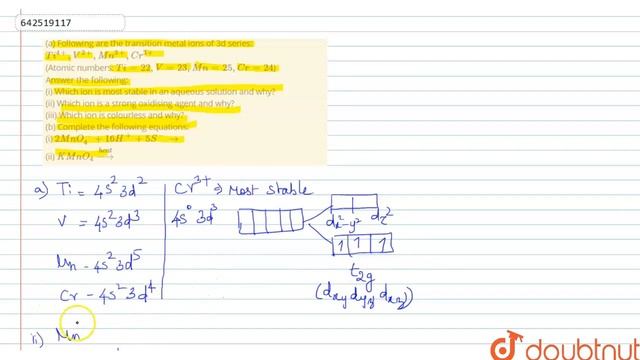 642519117
(a) Following are the transition metal ions of 3d series:
Ti⁴⁺, V²⁺, Mn³⁺, Cr³⁺
(Atomic numbers: Ti = 22, V = 23, Mn = 25, Cr = 24)
Answer the following:
(i) Which ion is most stable in an aqueous solution and why?
(ii) Which ion is a strong oxidising agent and why?
(iii) Which ion is colourless and why?
(b) Complete the following equations:
(i) 2MnO₄⁻ + 16H⁺ + 5S →
(ii) KMnO₄ heat→
a) Ti = 4s² 3d²
V = 4s² 3d³
Mn - 4s² 3d⁵
Cr - 4s² 3d⁴
Cr³⁺ → Most stable
4s⁰ 3d³
dx²-y² dz²
1 1 1
t2g
(dxy dyz dxz)
ii) Mn
doubtnut